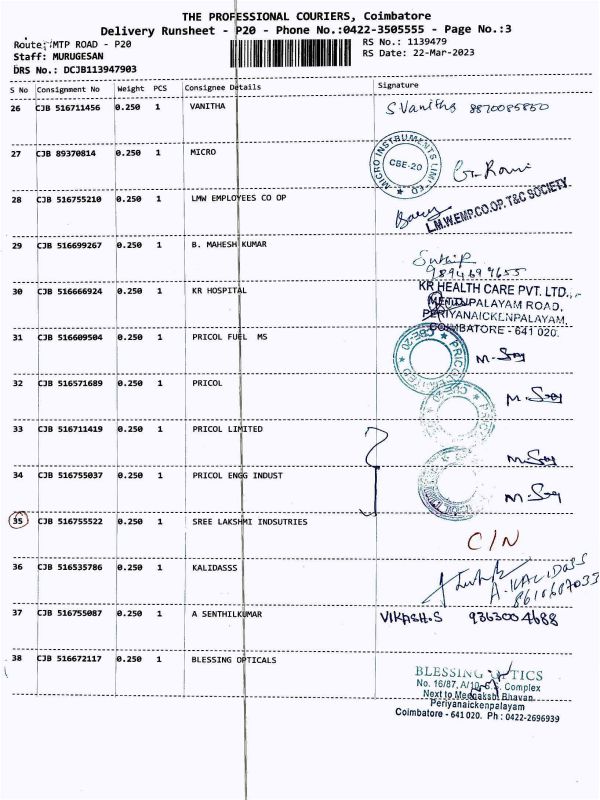 THE PROFESSIONAL COURIERS, Coimbatore
Delivery Runsheet - P20 - Phone No.:0422-3505555 - Page No.:3
Route: MTP ROAD - P20
RS No.: 1139479
Staff: MURUGESAN
RS Date: 22-Mar-2023
DRS No.: DCJB113947903
S No Consignment No Weight PCS Consignee Details Signature
26 CJB 516711456 0.250 1 VANITHA S Vanitha 8870085850
27 CJB 89370814 0.250 1 MICRO MICRO INSTRUMENTS LIMITED CBE-20
28 CJB 516755210 0.250 1 LMW EMPLOYEES CO OP L.M.W.EMP.CO.OP. T&C SOCIETY.
29 CJB 516699267 0.250 1 B. MAHESH KUMAR
30 CJB 516666924 0.250 1 KR HOSPITAL KR HEALTH CARE PVT. LTD.,
METTUPALAYAM ROAD,
PERIYANAICKENPALAYAM,
COIMBATORE - 641 020.
31 CJB 516609504 0.250 1 PRICOL FUEL MS PRICOL LIMITED CBE-20
32 CJB 516571689 0.250 1 PRICOL
33 CJB 516711419 0.250 1 PRICOL LIMITED
34 CJB 516755037 0.250 1 PRICOL ENGG INDUST
35 CJB 516755522 0.250 1 SREE LAKSHMI INDSUTRIES C/N
36 CJB 516535786 0.250 1 KALIDASSS A. KALIDOSS
8610687033
37 CJB 516755087 0.250 1 A SENTHILKUMAR VIKASH.S 9363004688
38 CJB 516672117 0.250 1 BLESSING OPTICALS BLESSING OPTICS
No. 16/87, Complex
Next to Meenakshi Bhavan
Periyanaickenpalayam
Coimbatore - 641 020. Ph : 0422-2696939